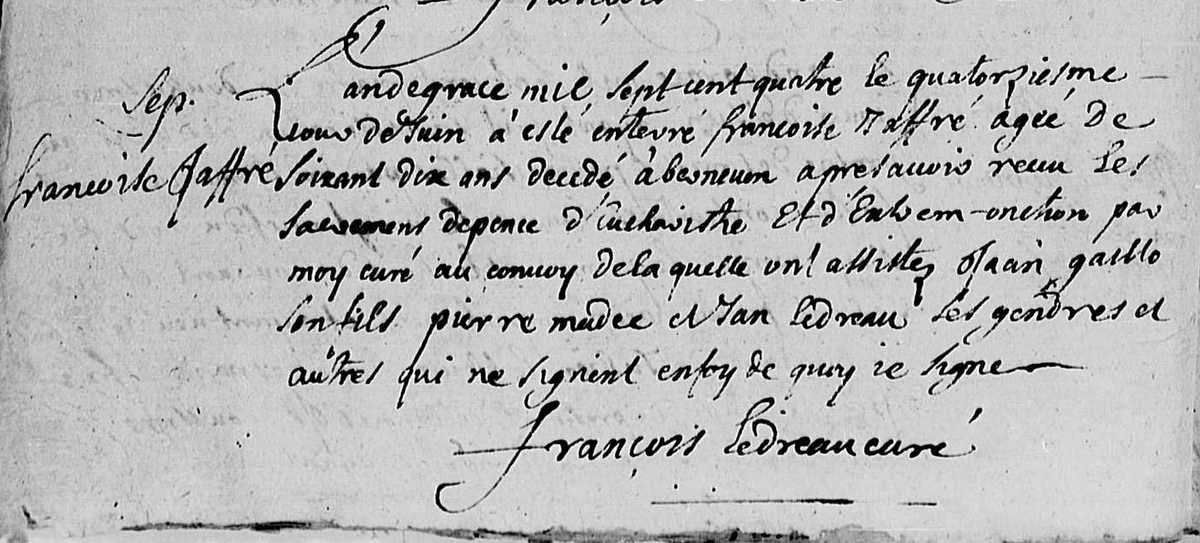 françois
Sep.
francoise Jaffré
Landegrace mil sept cent quatre le quatorziesme
iour de Juin à esté enterré francoise Jaffré agée de
soixant dix ans decedé à apres avoir receu les
sacremens de pence d'Eucharistie Et d'Extrem-onction par
moy curé au convoy de la quelle ont assistez Jaan gallo
son fils pierre madec et Jan Ledreau ses gendres et
autres qui ne signent en foy de quoy ie signe
françois Ledreau curé